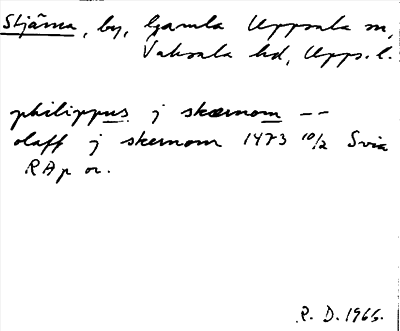 Stjärna, by, Gamla Uppsala sn,
Vaksala hd, Upps. l.
philippus j skærnom --
olaff j skernom 1473 10/2 Svia
RAp or.
R. D. 1965.